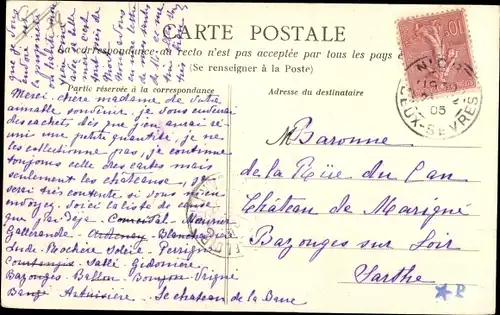 CARTE POSTALE
La correspondance au recto n'est pas acceptée par tous les pays é
(Se renseigner à la Poste)
Partie réservée à la correspondance
Adresse du destinataire
Merci chère madame de votre
aimable souvenir, je vous enverrai
des cachets, dès que j'en aurai ré-
uni une petite quantité, je ne
les collectionne pas, je continue
toujours celle des cartes mais
seulement les châteaux, ça
serai très contente si vous m'en
envoyez. Voici la liste de ceux
que j'ai déjà Courcival Maurier
Gallerande Ardenay Blanchardière
Inde Rochère Solère Perrigne
Courtangis Sallé Gidonière
Bazouges Ballon Bonjon Vrigné
Banzé Artuisière Le chateau de la Dame
Baronne
de la Rüe du Can
Château de Marigné
Bazouges sur Loir
Sarthe
NIORT
19
05
DEUX-SEVRES
10